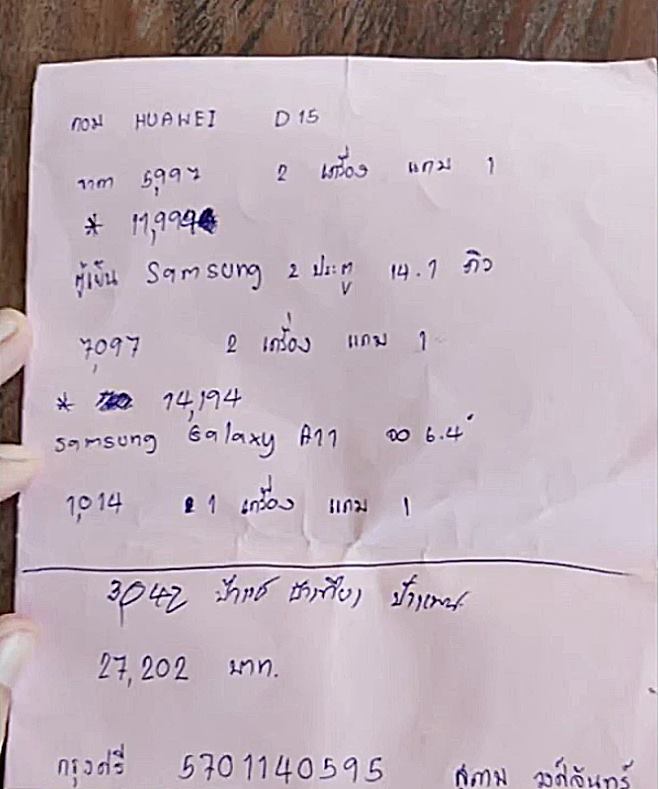 คอม HUAWEI D15
ราคา 5,997 2 เครื่อง แถม 1
* 11,994
ตู้เย็น Samsung 2 ประตู 14.1 คิว
7,097 2 เครื่อง แถม 1
* 14,194
Samsung Galaxy A11 จอ 6.4"
1,014 1 เครื่อง แถม 1
3,042 ป้า ป้า ป้า
27,202 บาท.
กรุงศรี 5701140595 สุภาพ วงศ์จันทร์